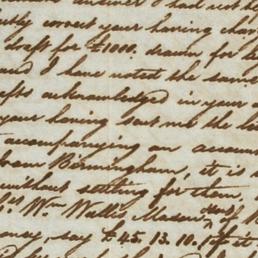 answer I had not
correct your having
draft for £1000. drawn for
and I have noted the same
acknowledged in your
your having sent me the
accompanying an account
from Birmingham, it is
without settling for them,
Wm Wallis Mason
say £45. 13. 10. if it